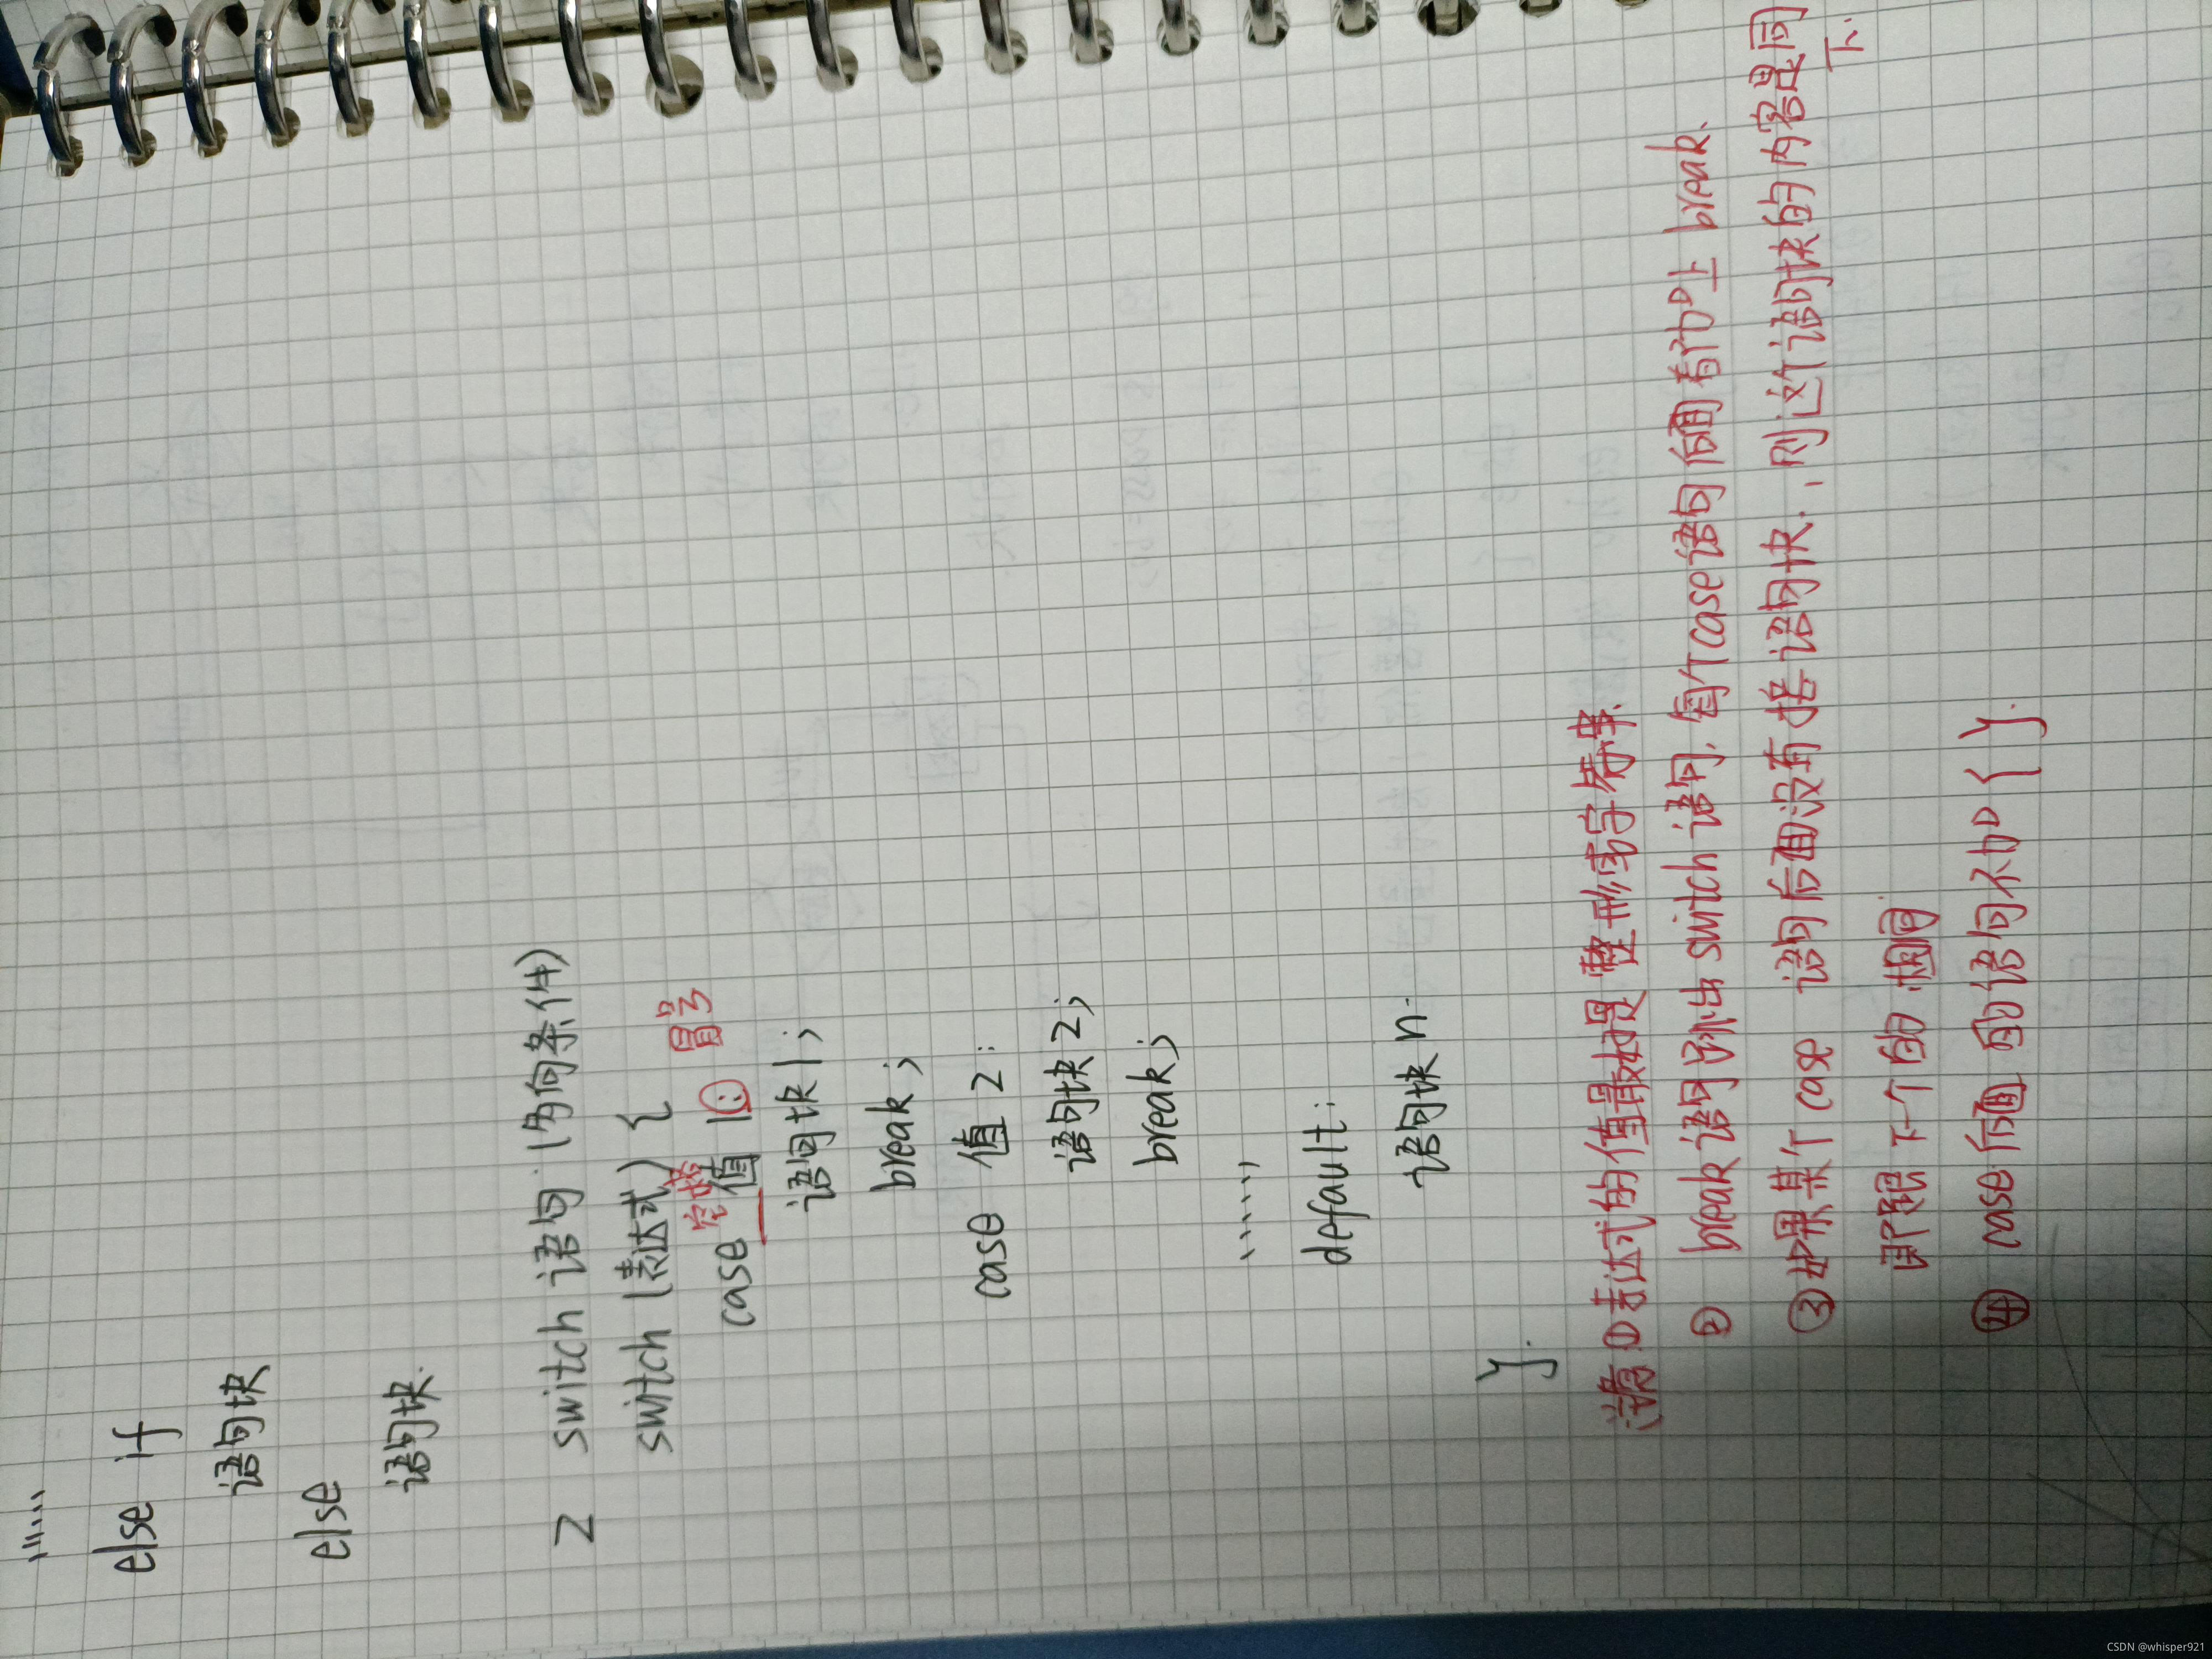 ......
else if
语句块
else
语句块.
2 switch 语句 (多向条件)
switch (表达式) {
空格 冒号
case 值 1:
语句块1;
break;
case 值 2:
语句块2;
break;
......
default:
语句块 n.
}.
①表达式的值最好是 整形或字符串.
② break 语句跳出 switch 语句, 每个case语句后面都加上 break.
③如果某个 case 语句后面没有接语句块., 则这个语句块的内容是同
下
跟下一个的相同
④ case 后面的语句不加 { }.
CSDN @whisper921